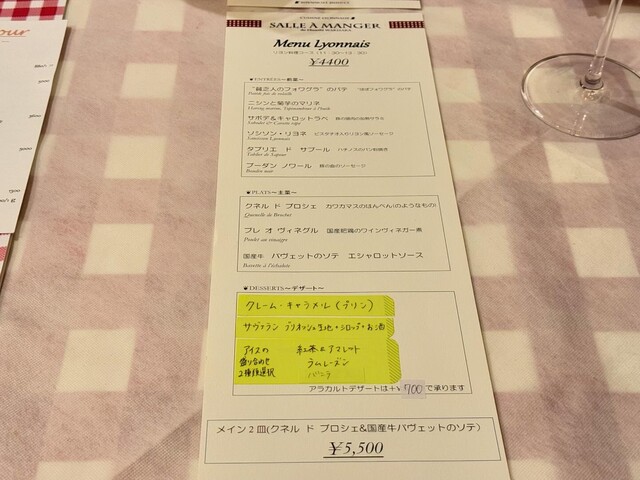 SALLE À MANGER
Menu Lyonnais
¥4400
ENTRÉES～前菜～
"貧乏人のフォワグラ"のパテ
ニシンと菊芋のマリネ
サボデ&キャロットラペ
ソシソン・リヨネ ピスタチオ入りリヨン風ソーセージ
タブリエ ド サプール ハチノスのパン粉焼き
ブーダン ノワール 豚の血のソーセージ
Boudin noir
PLATS～主菜～
クネル ド ブロシェ カワカマスのはんぺん(のようなもの)
Quenelle de Brochet
プレ オ ヴィネグル 国産肥鶏のワインヴィネガー煮
Poulet au vinaigre
国産牛 バヴェットのソテ エシャロットソース
Bavette à l'échalote
DESSERTS～デザート～
クレーム・キャラメル(プリン)
サヴァラン ブリオッシュ生地+シロップ+お酒
アイスの 紅茶とアマレット
盛り合わせ ラムレーズン
2種類選択 バニラ
アラカルトデザートは+¥700で承ります
メイン2皿(クネル ド ブロシェ&国産牛バヴェットのソテ)
¥5,500